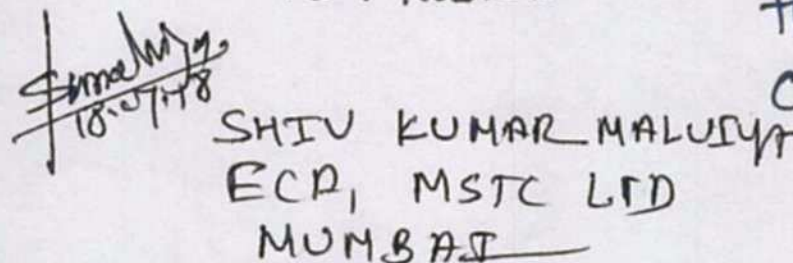 18.07.18
SHIV KUMAR MALVIYA
ECD, MSTC LTD
MUMBAI